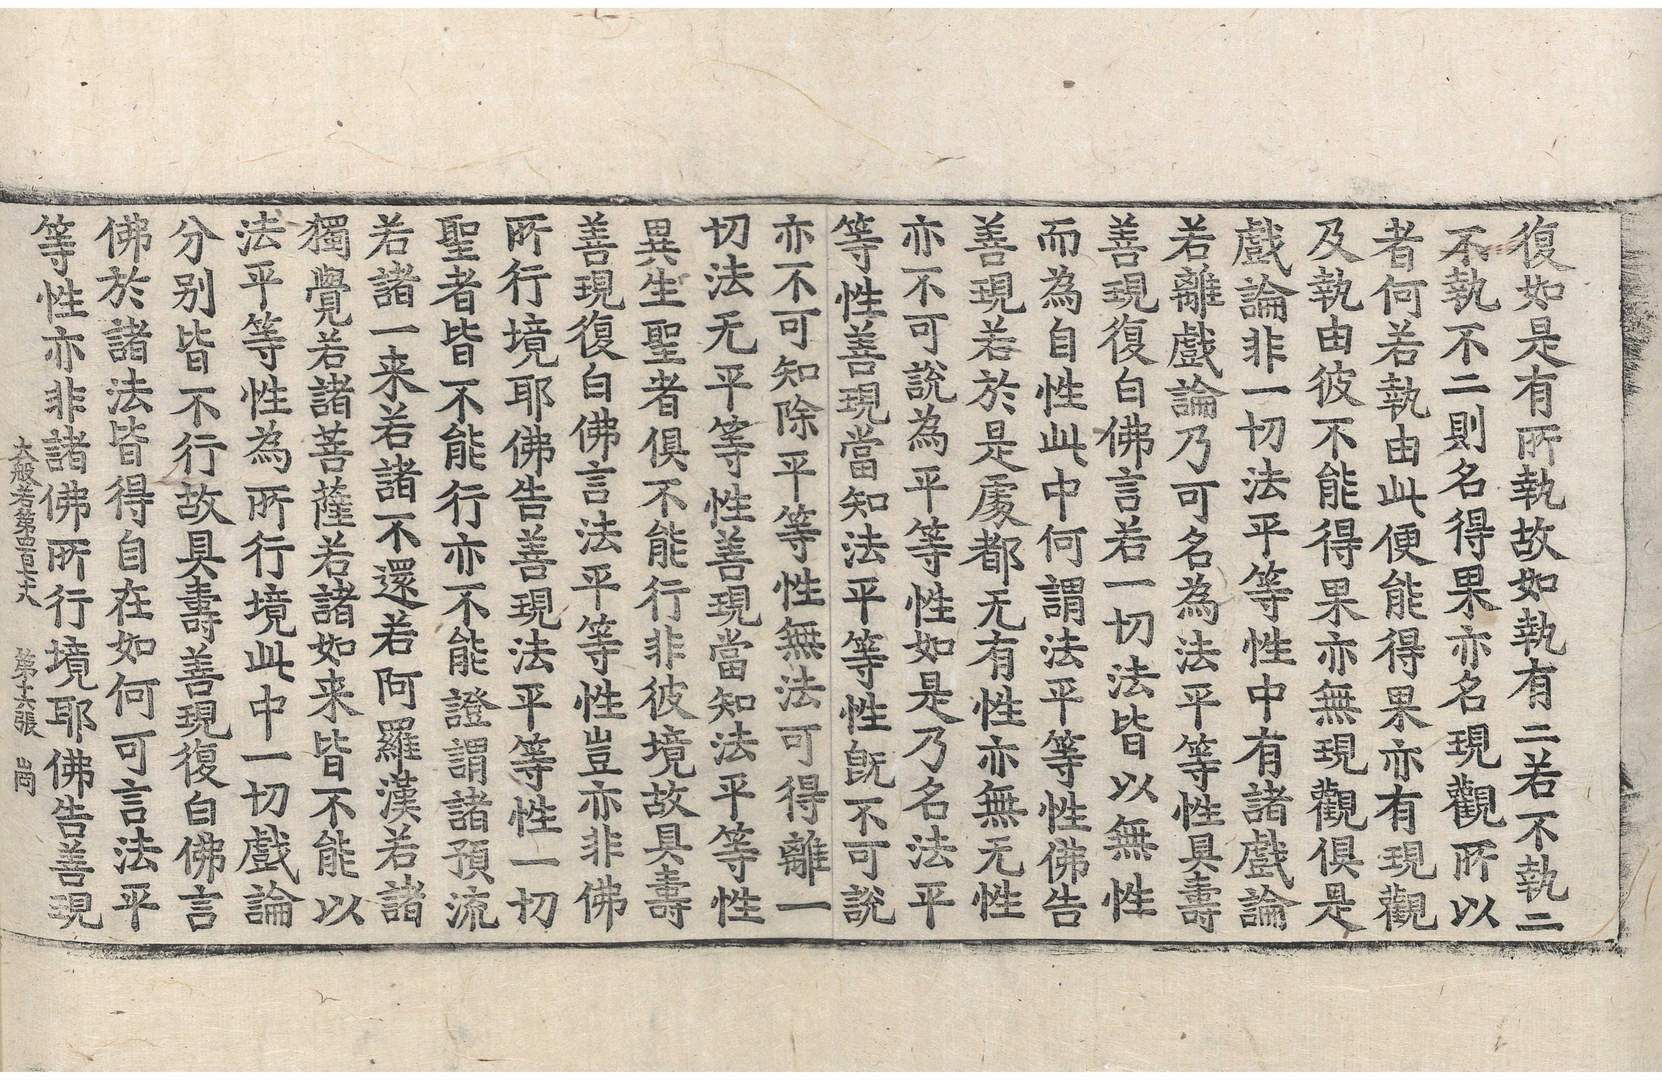 復如是有所執故如執有二若不執二
不執不二則名得果亦名現觀所以
者何若執由此便能得果亦有現觀
及執由彼不能得果亦無現觀俱是
戲論非一切法平等性中有諸戲論
若離戲論乃可名為法平等性具壽
善現復白佛言若一切法皆以無性
而為自性此中何謂法平等性佛告
善現若於是處都无有性亦無无性
亦不可說為平等性如是乃名法平
等性善現當知法平等性旣不可說
亦不可知除平等性無法可得離一
切法无平等性善現當知法平等性
異生聖者俱不能行非彼境故具壽
善現復白佛言法平等性豈亦非佛
所行境耶佛告善現法平等性一切
聖者皆不能行亦不能證謂諸預流
若諸一来若諸不還若阿羅漢若諸
獨覺若諸菩薩若諸如来皆不能以
法平等性為所行境此中一切戲論
分別皆不行故具壽善現復白佛言
佛於諸法皆得自在如何可言法平
等性亦非諸佛所行境耶佛告善現
大般若第四百七十八 第十六張